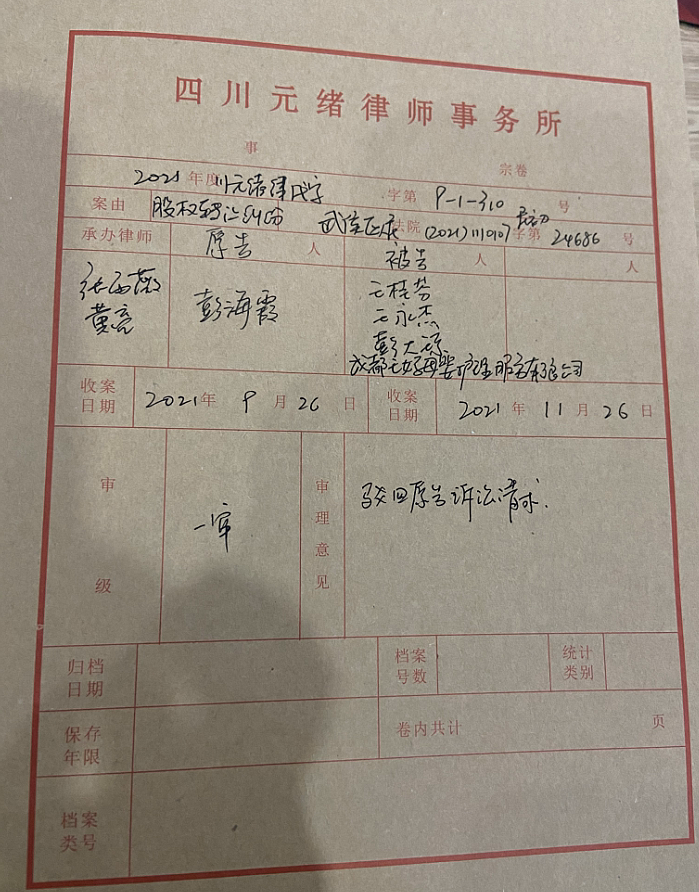 四川元绪律师事务所
事 宗卷
2021年度川元绪律民字 字第 9-1-310 号
案由 股权转让纠纷 武侯区法院 (2021)川0107民初字第24686号
承办律师 原告 人 被告 人 人
黄亮 彭海霞 王桂芳
王永杰
收案日期 2021年9月26日 收案日期 2021年11月26日
审级 一审 审理意见 驳回原告诉讼请求.
归档日期 档案号数 统计类别
保存年限 卷内共计 页
档案类号